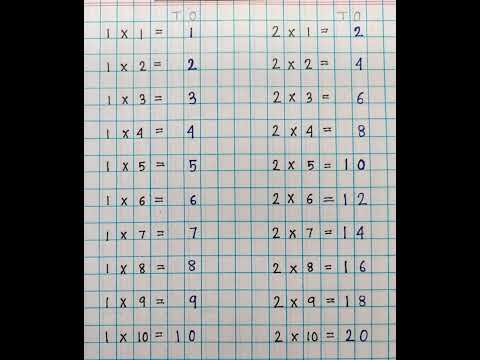 T O T O
1 x 1 = 1 2 x 1 = 2
1 x 2 = 2 2 x 2 = 4
1 x 3 = 3 2 x 3 = 6
1 x 4 = 4 2 x 4 = 8
1 x 5 = 5 2 x 5 = 10
1 x 6 = 6 2 x 6 = 12
1 x 7 = 7 2 x 7 = 14
1 x 8 = 8 2 x 8 = 16
1 x 9 = 9 2 x 9 = 18
1 x 10 = 10 2 x 10 = 20